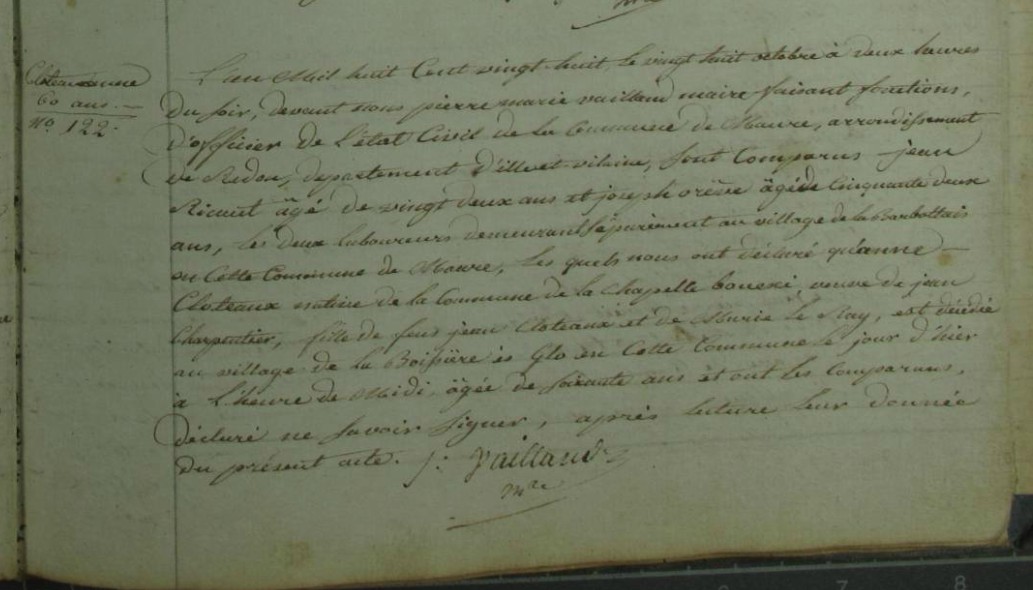 Cloteaux anne
60 ans.
No. 122.
L'an Mil huit Cent vingt-huit, le vingt huit octobre à deux heures
du soir, devant nous pierre marie vailland maire faisant fonctions,
d'officier de L'état Civil de la Commune de Maure, arrondissement
de Redon, departement d'ille et vilaine, sont Comparus jean
Ricaut âgé de vingt deux ans et joseph orève âgé de Cinquante deux
ans, les deux laboureurs demeurant séparément au village de la Barbottais
en Cette Commune de Maure, les quels nous ont déclaré qu'anne
Cloteaux native de la Commune de la Chapelle bouexi, veuve de jean
Charpentier, fille de feu jean Cloteaux et de Marie le Ray, est décédée
au village de la Boissière ès Glo en Cette Commune le jour d'hier
à L'heure de Midi, âgée de soixante ans et ont les Comparans,
déclaré ne savoir signer, après lecture leur donnée
du présent acte. P: Vailland
mre